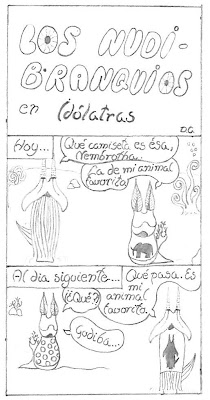 LOS NUDI-
BRANQUIOS
en Idólatras
D.G.
Hoy...
Qué camiseta es ésa,
Nembrotha.
La de mi animal
favorito.
Al día siguiente...
¿¡Qué?
Godiba...
Qué pasa. Es
mi
animal
favorito.